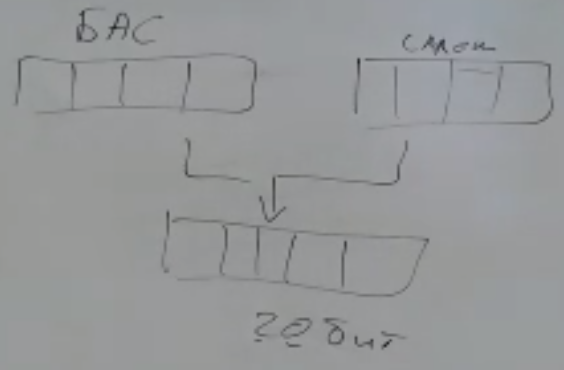 БАС
смещ
20 бит